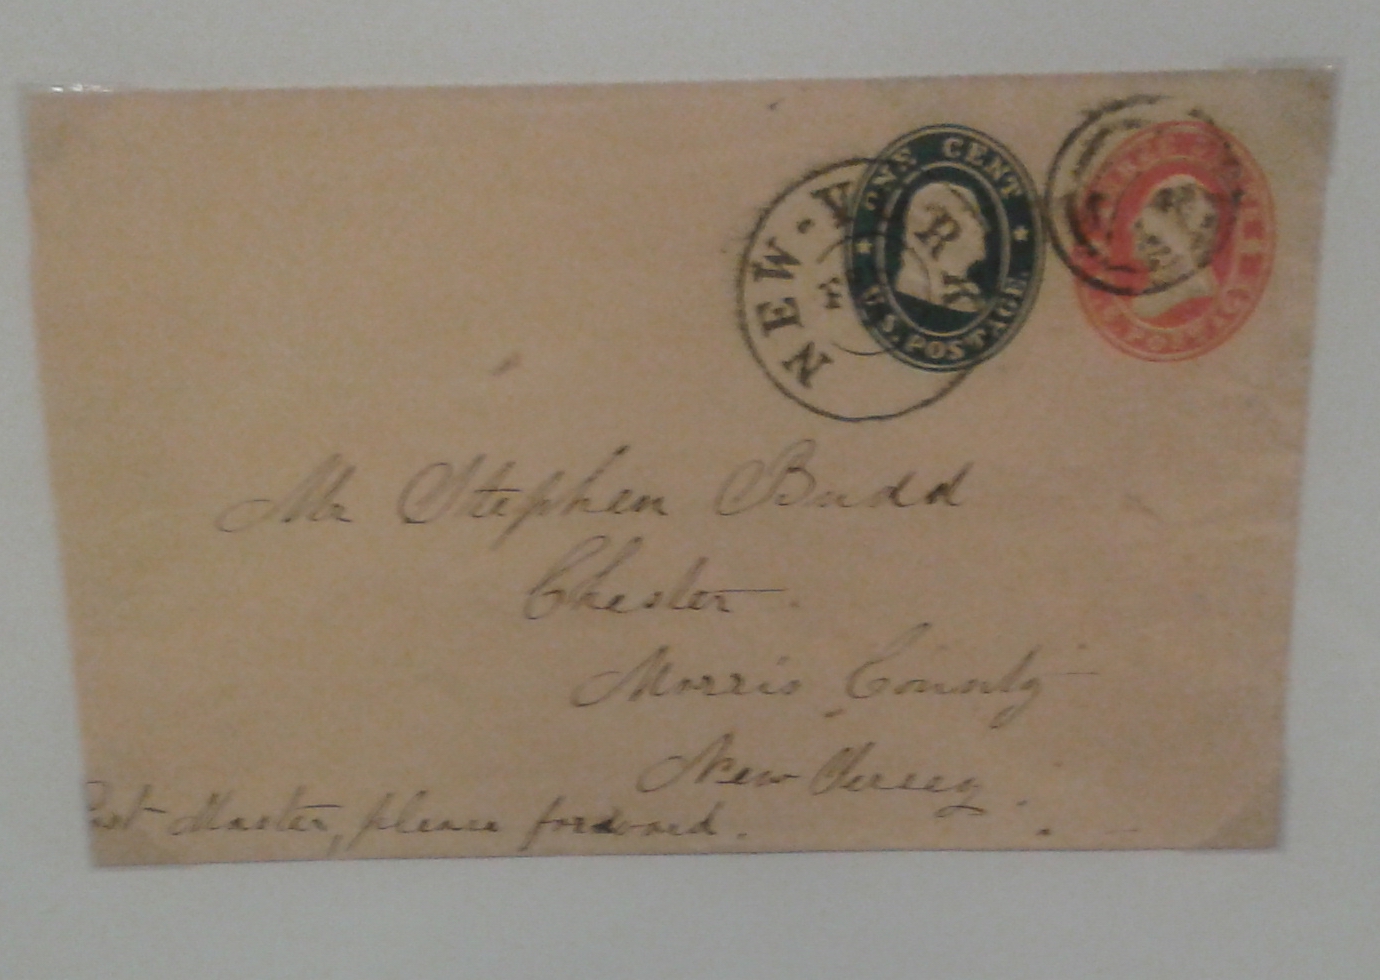 ONE CENT
U.S. POSTAGE.
NEW-YORK
POSTAGE
Mr Stephen Budd
Chester
Morris County
New Jersey.
Post Master, please forward.